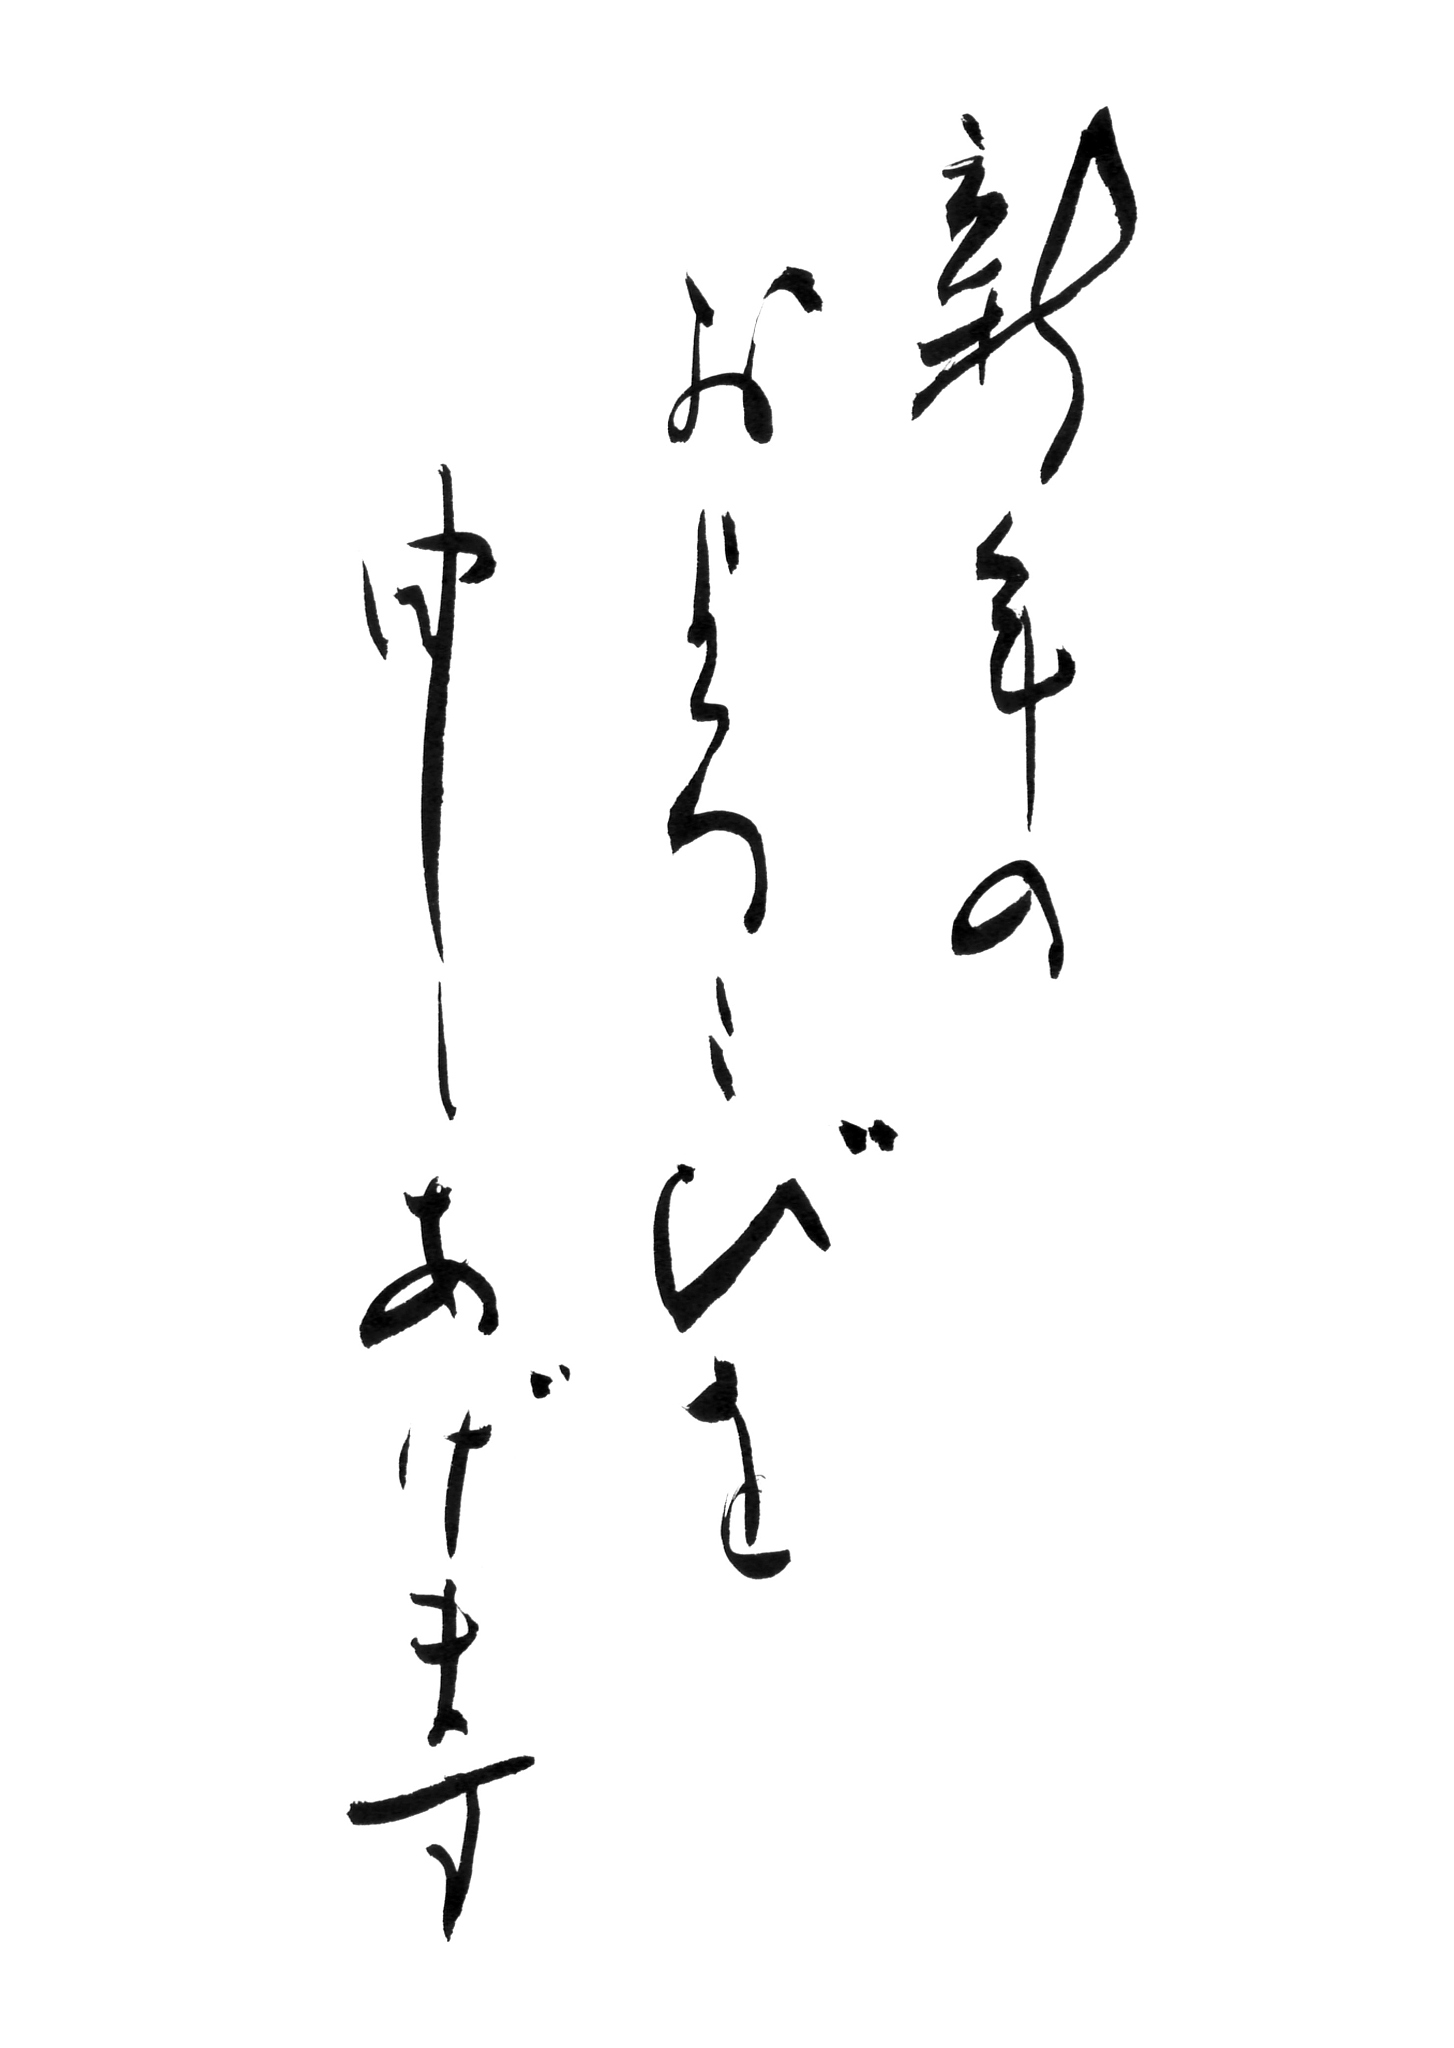 新年の
およろこびを
申しあげます